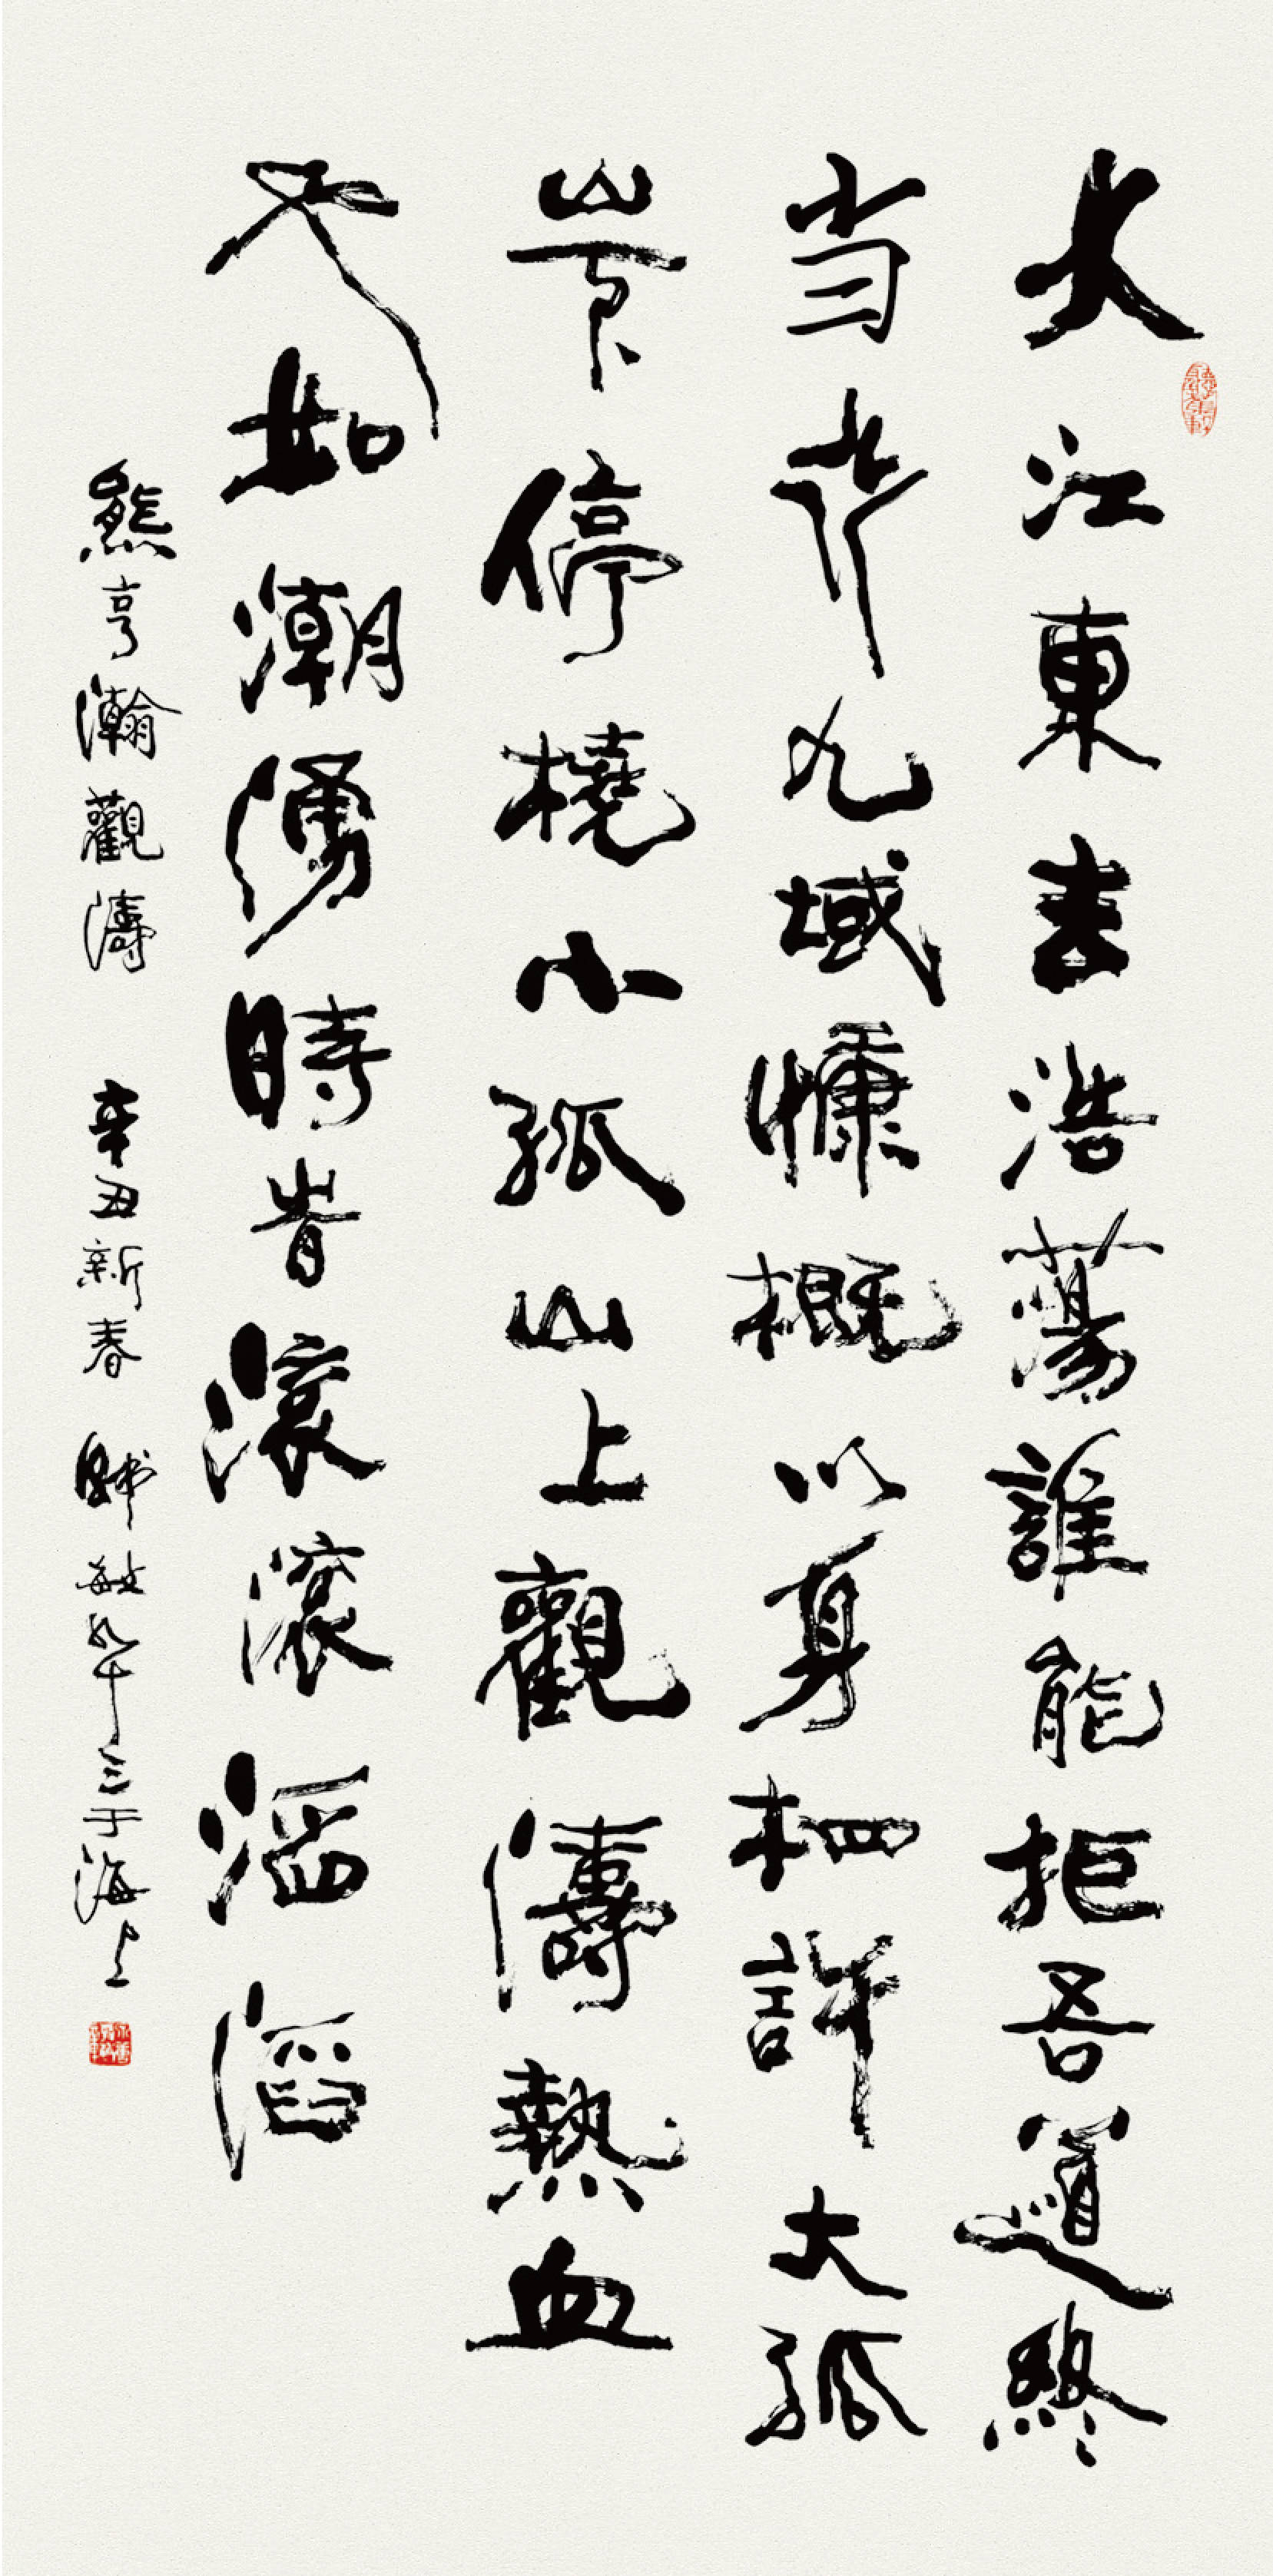 大江東去浩蕩誰能拒吾道終
当行九域慷概以身相許大孤
山下停橈小孤山上觀濤熱血
也如潮湧時旹滾滾滔滔
熊亨瀚觀濤 辛丑新春 于海上